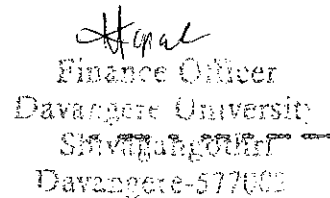 Finance Officer
Davangere University
Shivagangothri
Davangere-577002